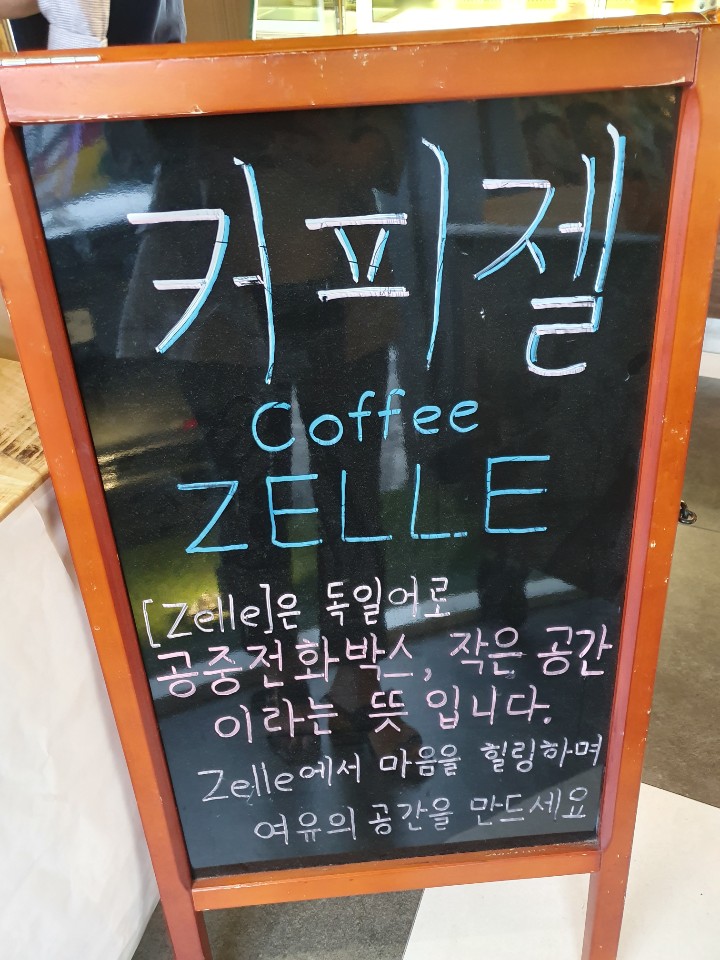 커피젤
Coffee
ZELLE
[Zelle]은 독일어로
공중전화박스, 작은 공간
이라는 뜻 입니다.
Zelle에서 마음을 힐링하며
여유의 공간을 만드세요